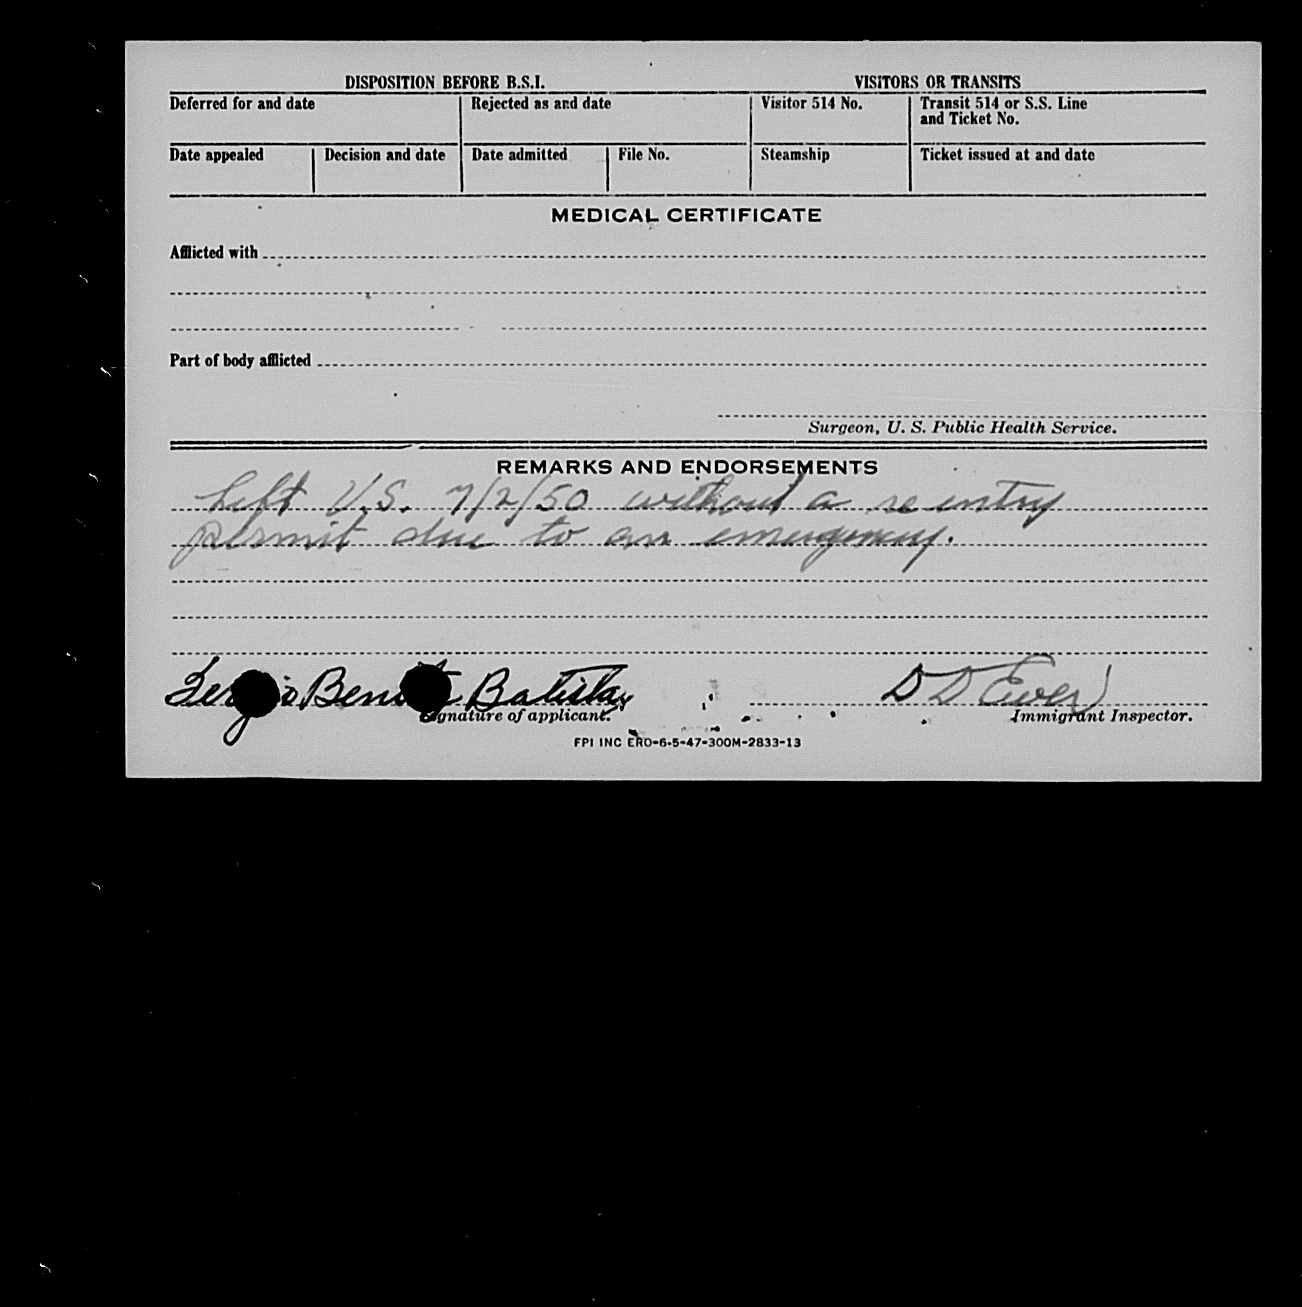 DISPOSITION BEFORE B.S.I. VISITORS OR TRANSITS
Deferred for and date Rejected as and date Visitor 514 No. Transit 514 or S.S. Line
and Ticket No.
Date appealed Decision and date Date admitted File No. Steamship Ticket issued at and date
MEDICAL CERTIFICATE
Afflicted with
Part of body afflicted
Surgeon, U. S. Public Health Service.
REMARKS AND ENDORSEMENTS
Left U.S. 7/2/50 without a reentry
permit due to an emergency.
Batista D D Ewer
Signature of applicant. Immigrant Inspector.
FPI INC ERO-6-5-47-300M-2833-13